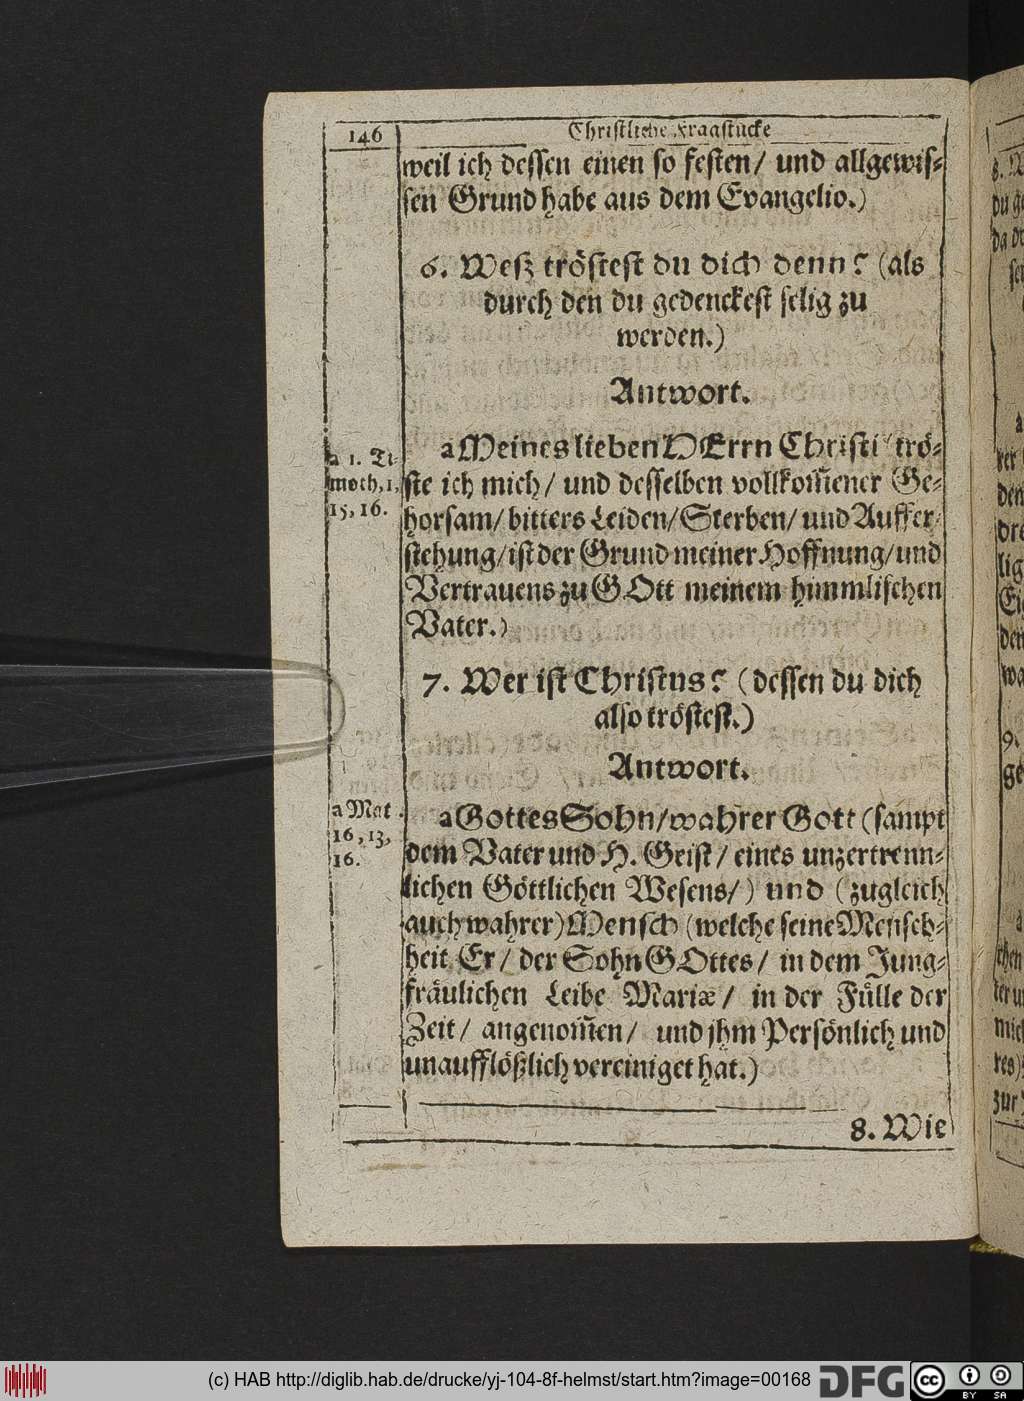 146 Christliche Fragstücke
weil ich dessen einen so festen/ und allgewis-
sen Grund habe aus dem Evangelio.)
6. Weß tröstest du dich denn? (als
durch den du gedenckest selig zu
werden.)
Antwort.
a Meines lieben HErrn Christi trö-
ste ich mich/ und desselben vollkom̃ener Ge-
horsam/ bitters Leiden/ Sterben/ und Auffer-
stehung/ ist der Grund meiner Hoffnung/ und
Vertrauens zu GOtt meinem himmlischen
Vater.)
a 1. Ti-
moth, 1,
15, 16.
7. Wer ist Christus? (dessen du dich
also tröstest.)
Antwort.
a Gottes Sohn/ wahrer Gott (sampt
dem Vater und H. Geist/ eines unzertrenn-
lichen Göttlichen Wesens/) und (zugleich
auch wahrer) Mensch (welche seine Mensch-
heit Er/ der Sohn GOttes/ in dem Jung-
fräulichen Leibe Mariæ/ in der Fülle der
Zeit/ angenom̃en/ und jhm Persönlich und
unaufflößlich vereiniget hat.)
a Mat.
16, 13,
16.
8. Wie
(c) HAB http://diglib.hab.de/drucke/yj-104-8f-helmst/start.htm?image=00168
DFG
cc
BY SA